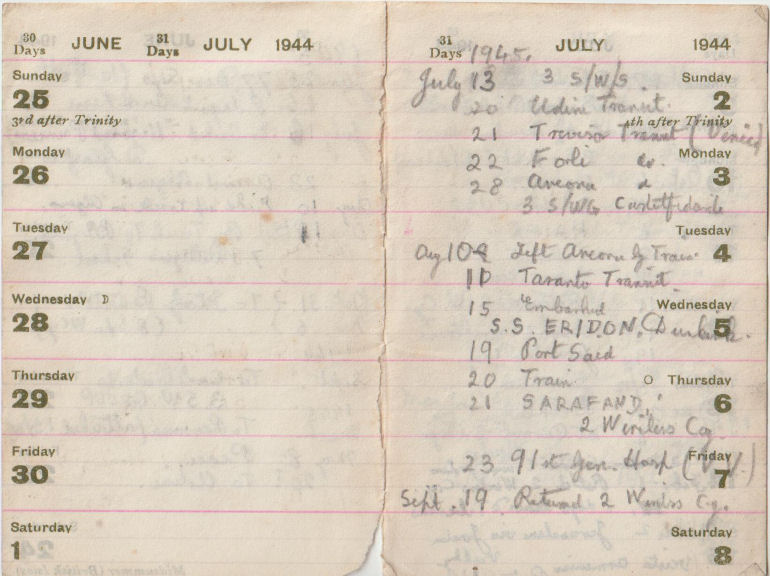 30 Days JUNE 31 Days JULY 1944
Sunday
25
3rd after Trinity
Monday
26
Tuesday
27
Wednesday D
28
Thursday
29
Friday
30
Saturday
1
31 Days JULY 1944
1945.
July 13 3 S/W/S. Sunday
2
20 Udine Transit.
4th after Trinity
21 Treviso Transit (Venice)
Monday
22 Forli do.
3
28 Ancona d
3 S/WG Castelfidardo
Tuesday
4
Aug 10 Left Ancona by Train.
11 Taranto Transit.
15 Embarked Wednesday
5
S.S. ERIDON.
19 Port Said
20 Train O Thursday
6
21 SARAFAND.
2 Wireless Cy.
Friday
7
23 91st Gen. Hosp
Sept. 19 Returned 2 Wirelss Cy.
Saturday
8